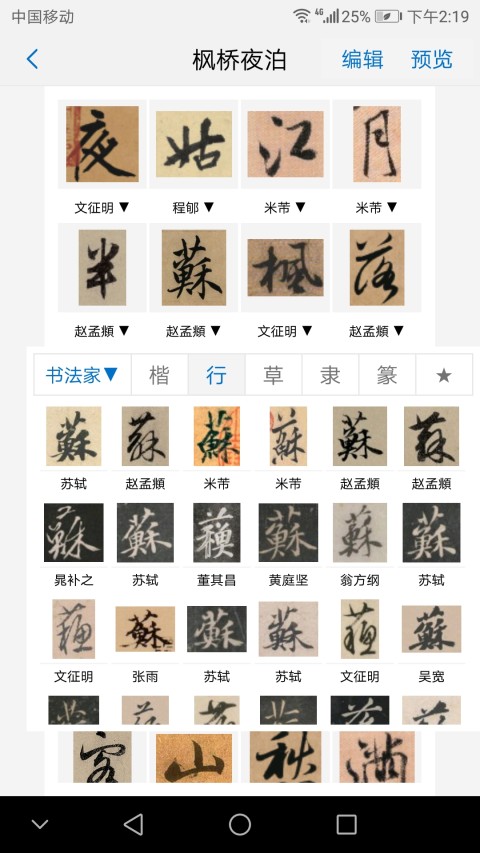 中国移动 4G 25% 下午2:19
枫桥夜泊 编辑 预览
夜 姑 江 月
文征明▼ 程邮▼ 米芾▼ 米芾▼
半 蘇 楓 落
赵孟頫▼ 赵孟頫▼ 文征明▼ 赵孟頫▼
书法家▼ 楷 行 草 隶 篆 ★
蘇 蘇 蘇 蘇 蘇 蘇
苏轼 赵孟頫 米芾 米芾 赵孟頫 赵孟頫
蘇 蘇 蘇 蘇 蘇 蘇
晁补之 苏轼 董其昌 黄庭坚 翁方纲 苏轼
蘇 蘇 蘇 蘇 蘇 蘇
文征明 张雨 苏轼 苏轼 文征明 吴宽
客 山 秋 滿